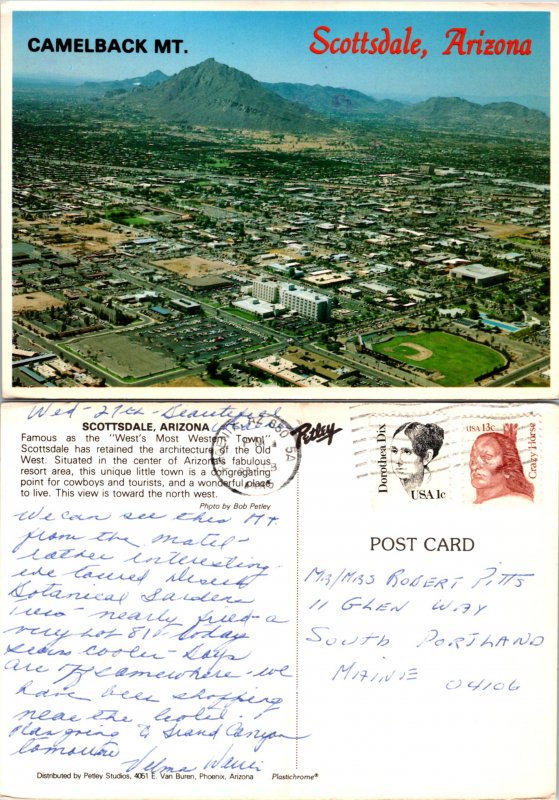 CAMELBACK MT.
Scottsdale, Arizona
Wed - 27th - Beautiful
SCOTTSDALE, ARIZONA
Famous as the "West's Most Western Town"
Scottsdale has retained the architecture of the Old
West. Situated in the center of Arizona's fabulous
resort area, this unique little town is a congregating
point for cowboys and tourists, and a wonderful place
to live. This view is toward the north west.
Photo by Bob Petley
We can see this Mt
from the motel -
rather interesting -
we toured Desert
Botanical Gardens
nearly fried - a
very hot 81° - today
seems cooler - Days
are off somewhere - we
have been shopping
near the hotel.
Plan going to Grand Canyon
tomorrow
Velma
Distributed by Petley Studios, 4051 E. Van Buren, Phoenix, Arizona
Plastichrome®
Petley
Dorothea Dix
USA 1c
USA 13c
Crazy Horse
POST CARD
MR/MRS ROBERT PITTS
11 GLEN WAY
SOUTH PORTLAND
MAINE 04106